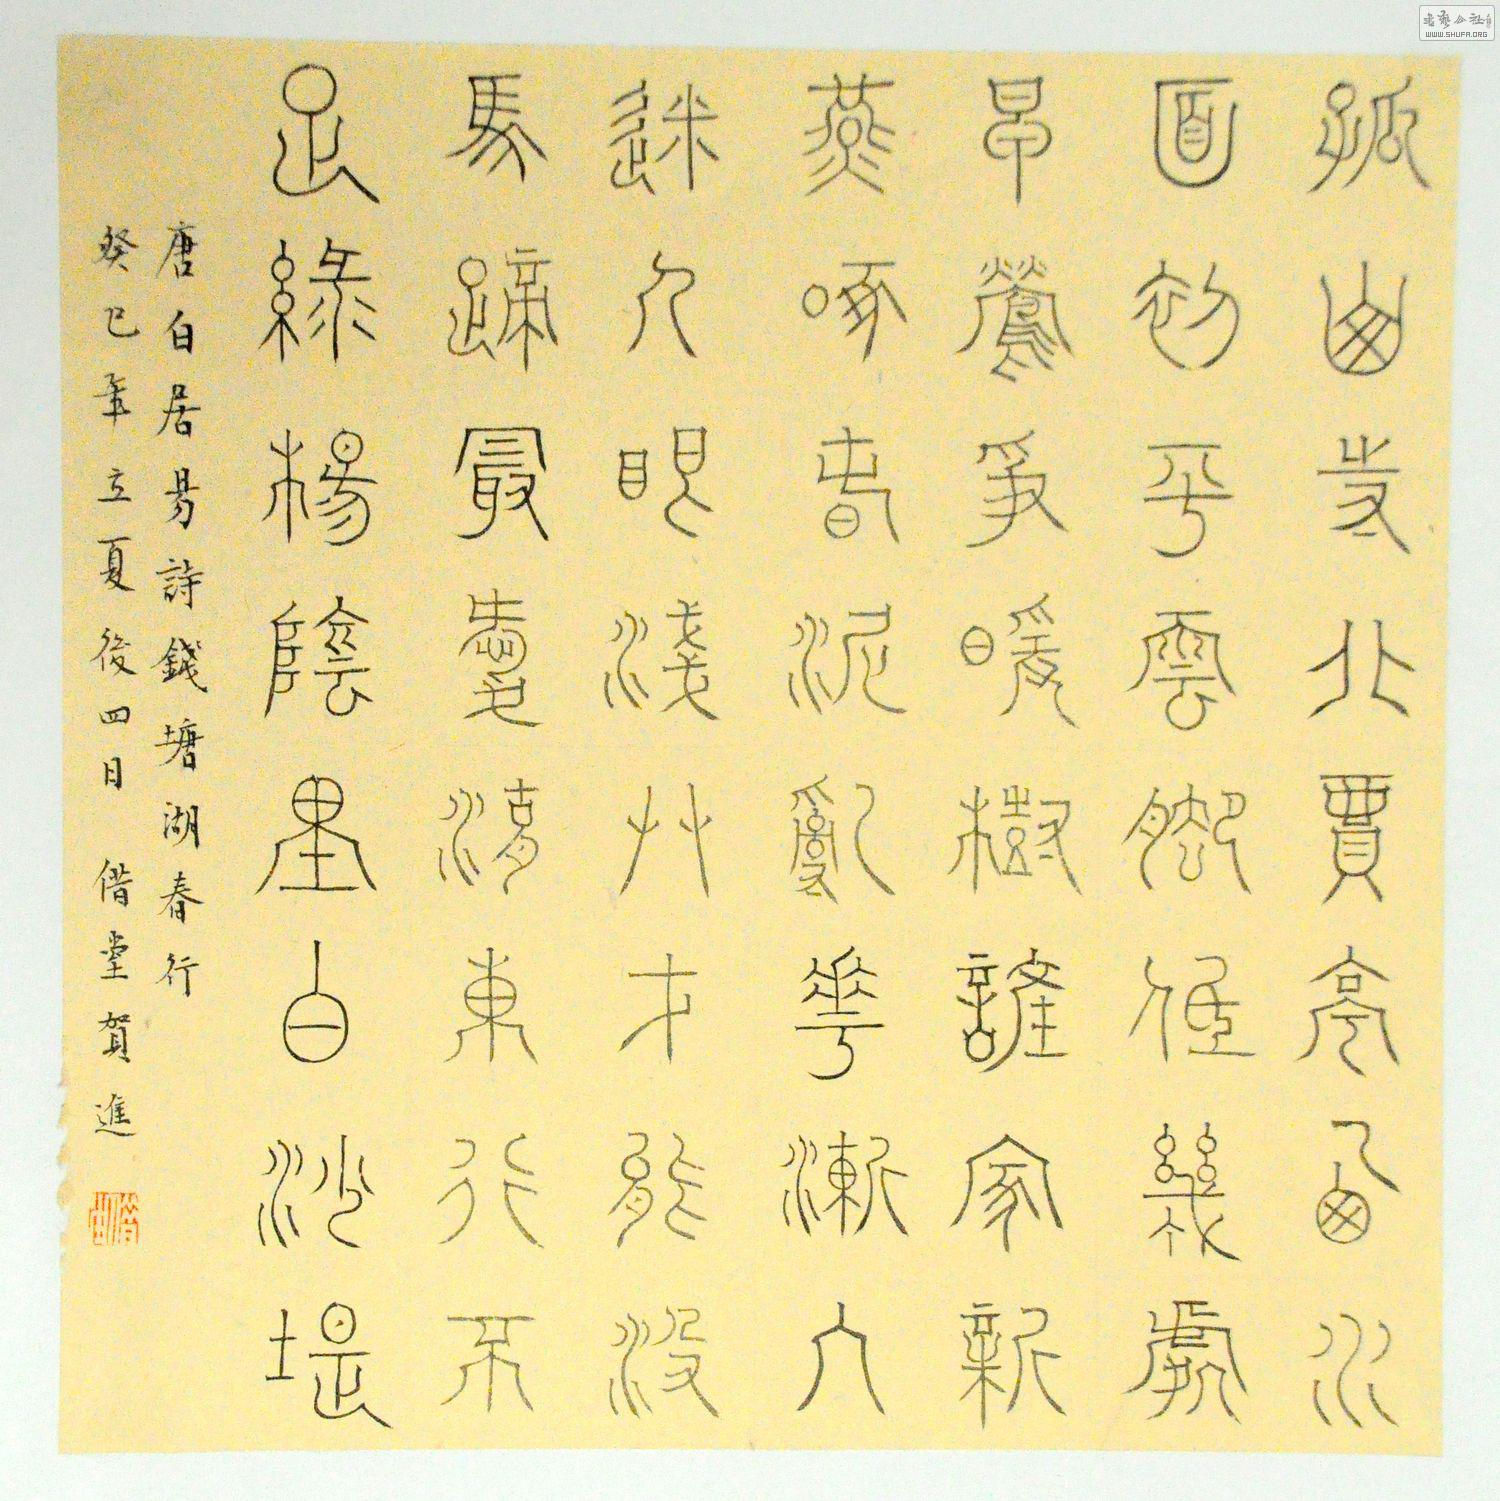 孤山寺北賈亭西水
面初平雲腳低幾處
早鶯爭暖樹誰家新
燕啄春泥亂花漸入
迷人眼淺草才能沒
馬蹄最愛湖東行不
足綠楊陰里白沙堤
唐白居易詩錢塘湖春行
癸巳年立夏後四日 借堂賀進
WWW.SHUFA.ORG